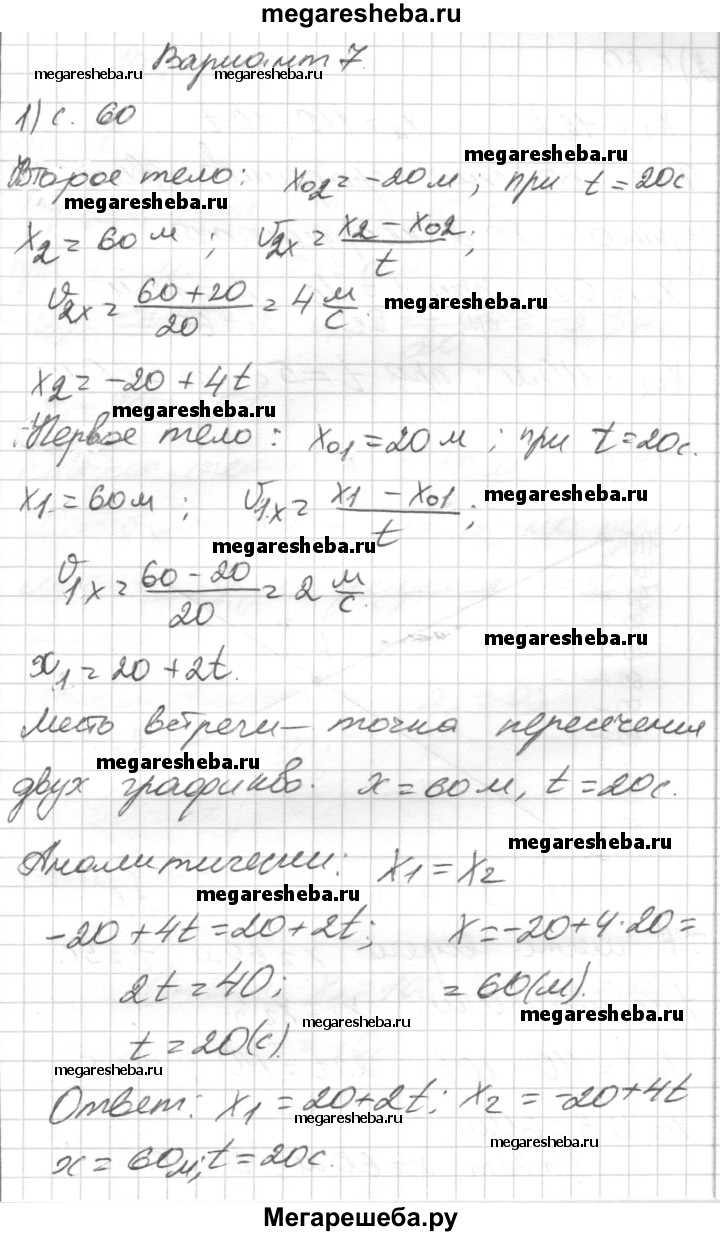 megaresheba.ru
Вариант 7.
megaresheba.ru megaresheba.ru megaresheba.ru
1) с. 60
megaresheba.ru
Второе тело: x₀₂ = -20 м ; при t = 20с
megaresheba.ru
x₂ = 60 м ; υ₂ₓ = (x₂ - x₀₂)/t ;
υ₂ₓ = (60+20)/20 = 4 м/с.
megaresheba.ru
x₂ = -20 + 4t
megaresheba.ru
Первое тело : x₀₁ = 20 м ; при t = 20с.
x₁ = 60м ; υ₁ₓ = (x₁ - x₀₁)/t ;
megaresheba.ru
megaresheba.ru
υ₁ₓ = (60 - 20)/20 = 2 м/с.
megaresheba.ru
x₁ = 20 + 2t.
Месть встречи — точка пересечения
megaresheba.ru
двух графиков. x = 60 м, t = 20с.
megaresheba.ru
Аналитически: x₁ = x₂
megaresheba.ru
-20 + 4t = 20 + 2t; x = -20 + 4·20 =
2t = 40; = 60(м).
megaresheba.ru
megaresheba.ru
t = 20(с).
megaresheba.ru
Ответ: x₁ = 20+2t; x₂ = -20+4t
megaresheba.ru
megaresheba.ru
x = 60м; t = 20с.
Мегарешеба.ру